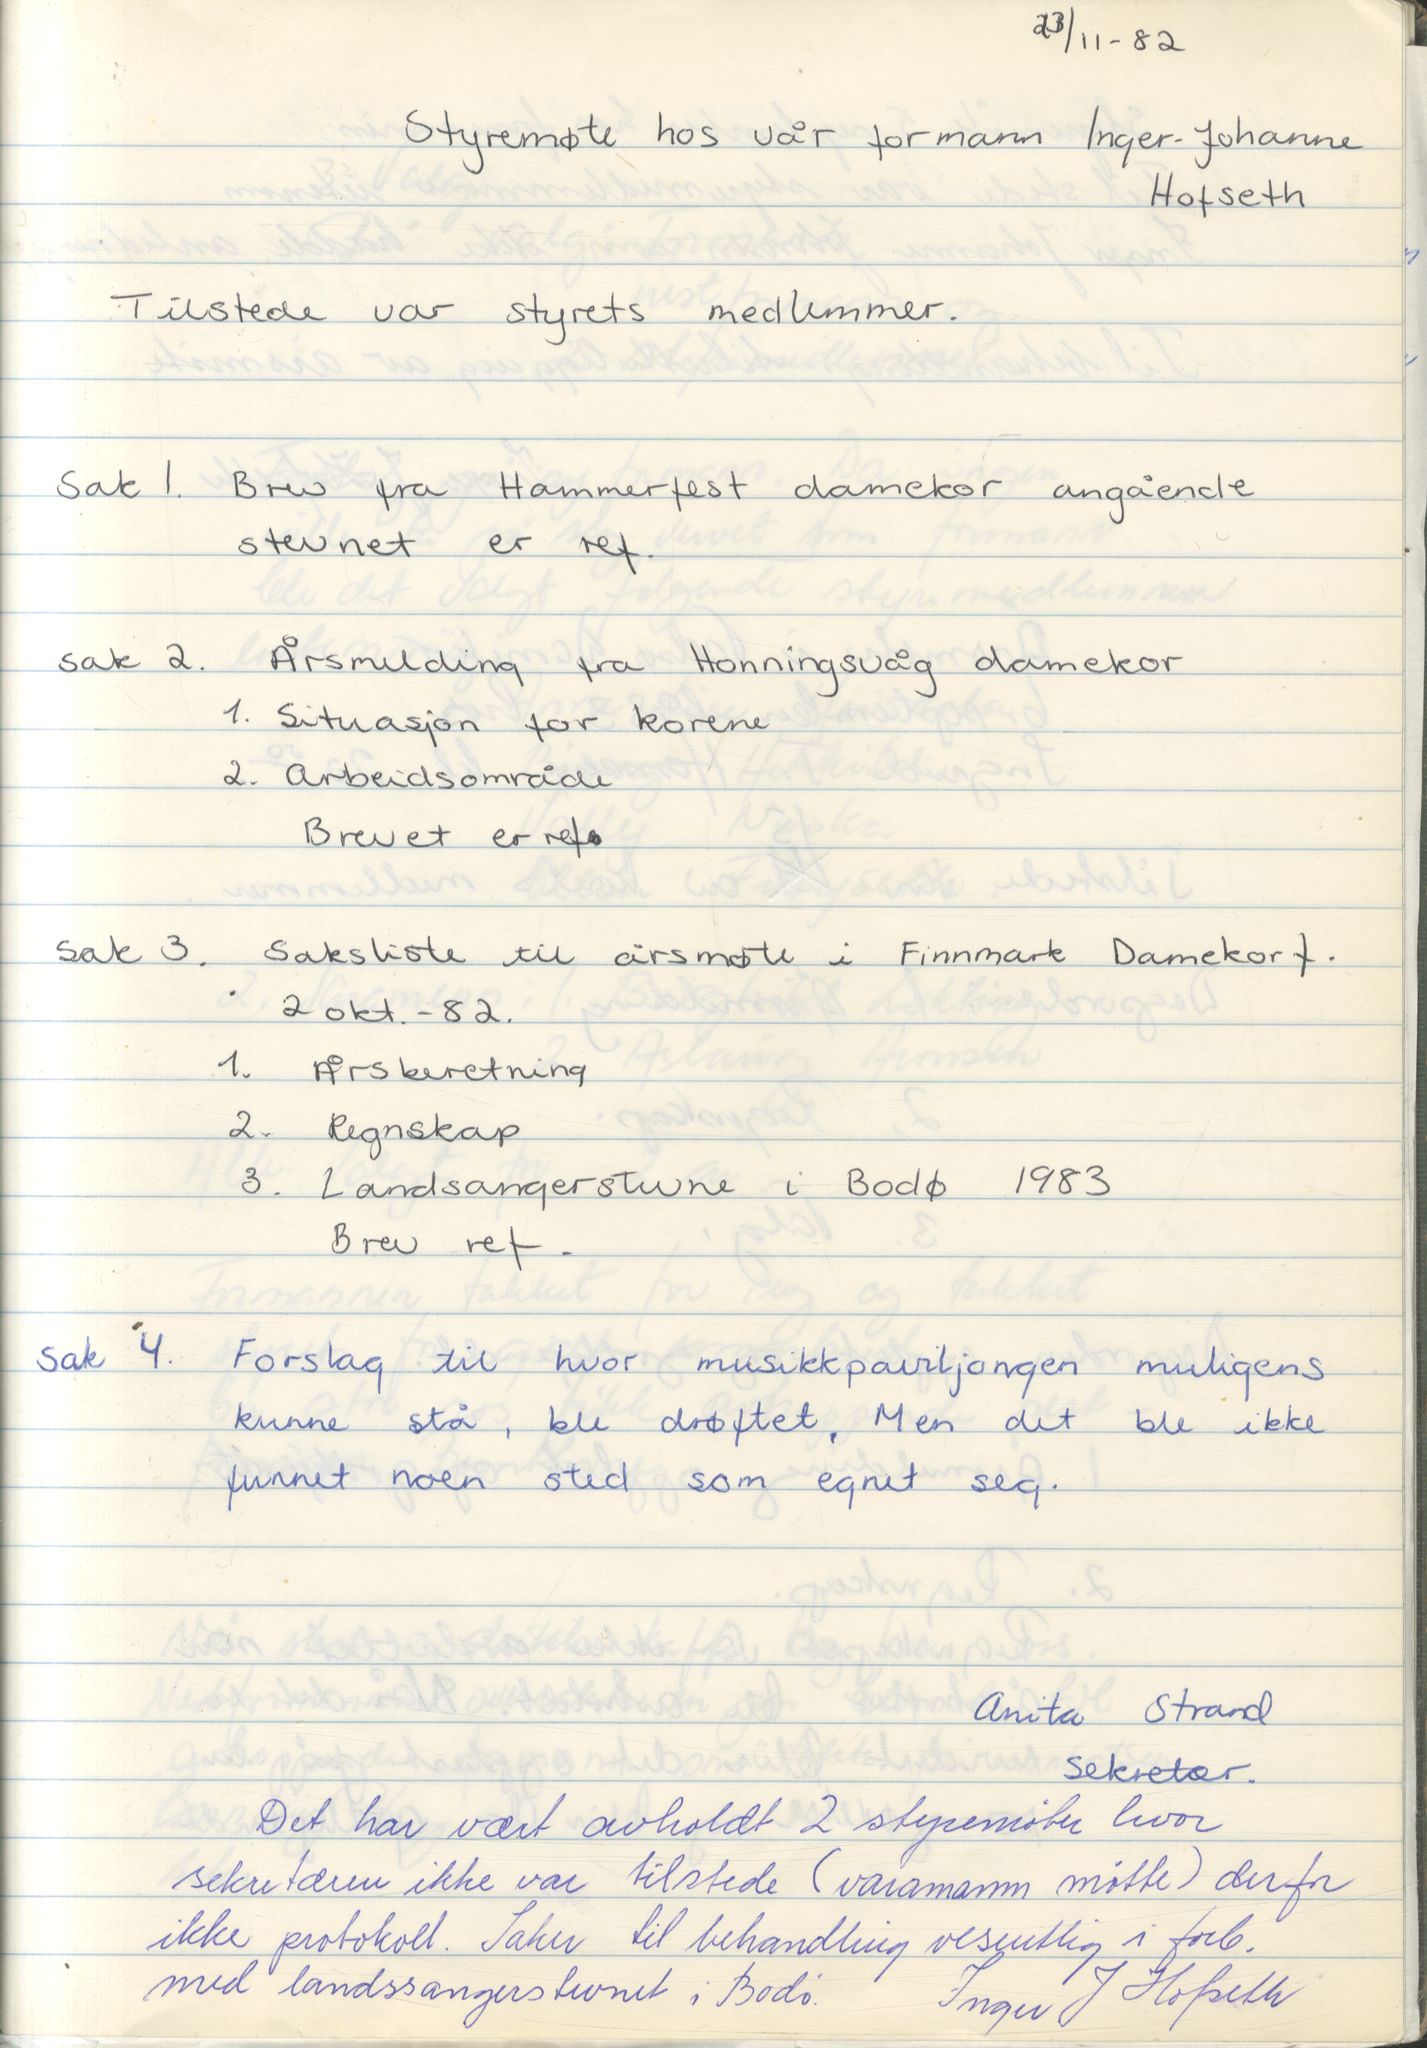 23/11-82
Styremøte hos vår formann Inger-Johanne
Hofseth
Tilstede var styrets medlemmer.
Sak 1. Brev fra Hammerfest damekor angående
stevnet er ref.
Sak 2. Årsmelding fra Honningsvåg damekor
1. Situasjon for korene
2. Arbeidsområde
Brevet er ref.
Sak 3. Saksliste til årsmøte i Finnmark Damekorf.
2 okt. - 82.
1. Årsberetning
2. Regnskap
3. Landsangerstevne i Bodø 1983
Brev ref.
Sak 4. Forslag til hvor musikkpaviljongen muligens
kunne stå, ble drøftet. Men det ble ikke
funnet noen sted som egnet seg.
Anita Strand
Sekretær.
Det har vært avholdt 2 styremøter hvor
sekretæren ikke var tilstede (varamann møtte) derfor
ikke protokoll. Saker til behandling vesentlig i forb.
med landssangerstevnet i Bodø. Inger J Hofseth